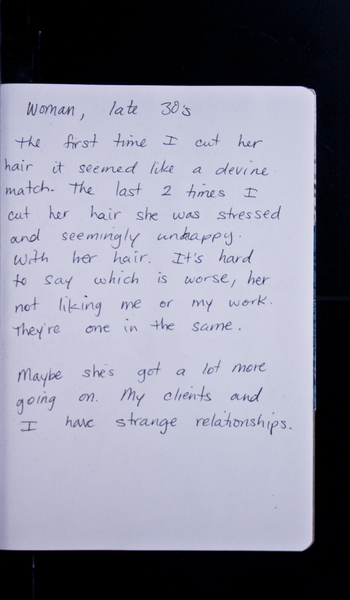 Woman, late 30's
The first time I cut her
hair it seemed like a devine
match. The last 2 times I
cut her hair she was stressed
and seemingly unhappy.
With her hair. It's hard
to say which is worse, her
not liking me or my work.
They're one in the same.
Maybe she's got a lot more
going on. My clients and
I have strange relationships.